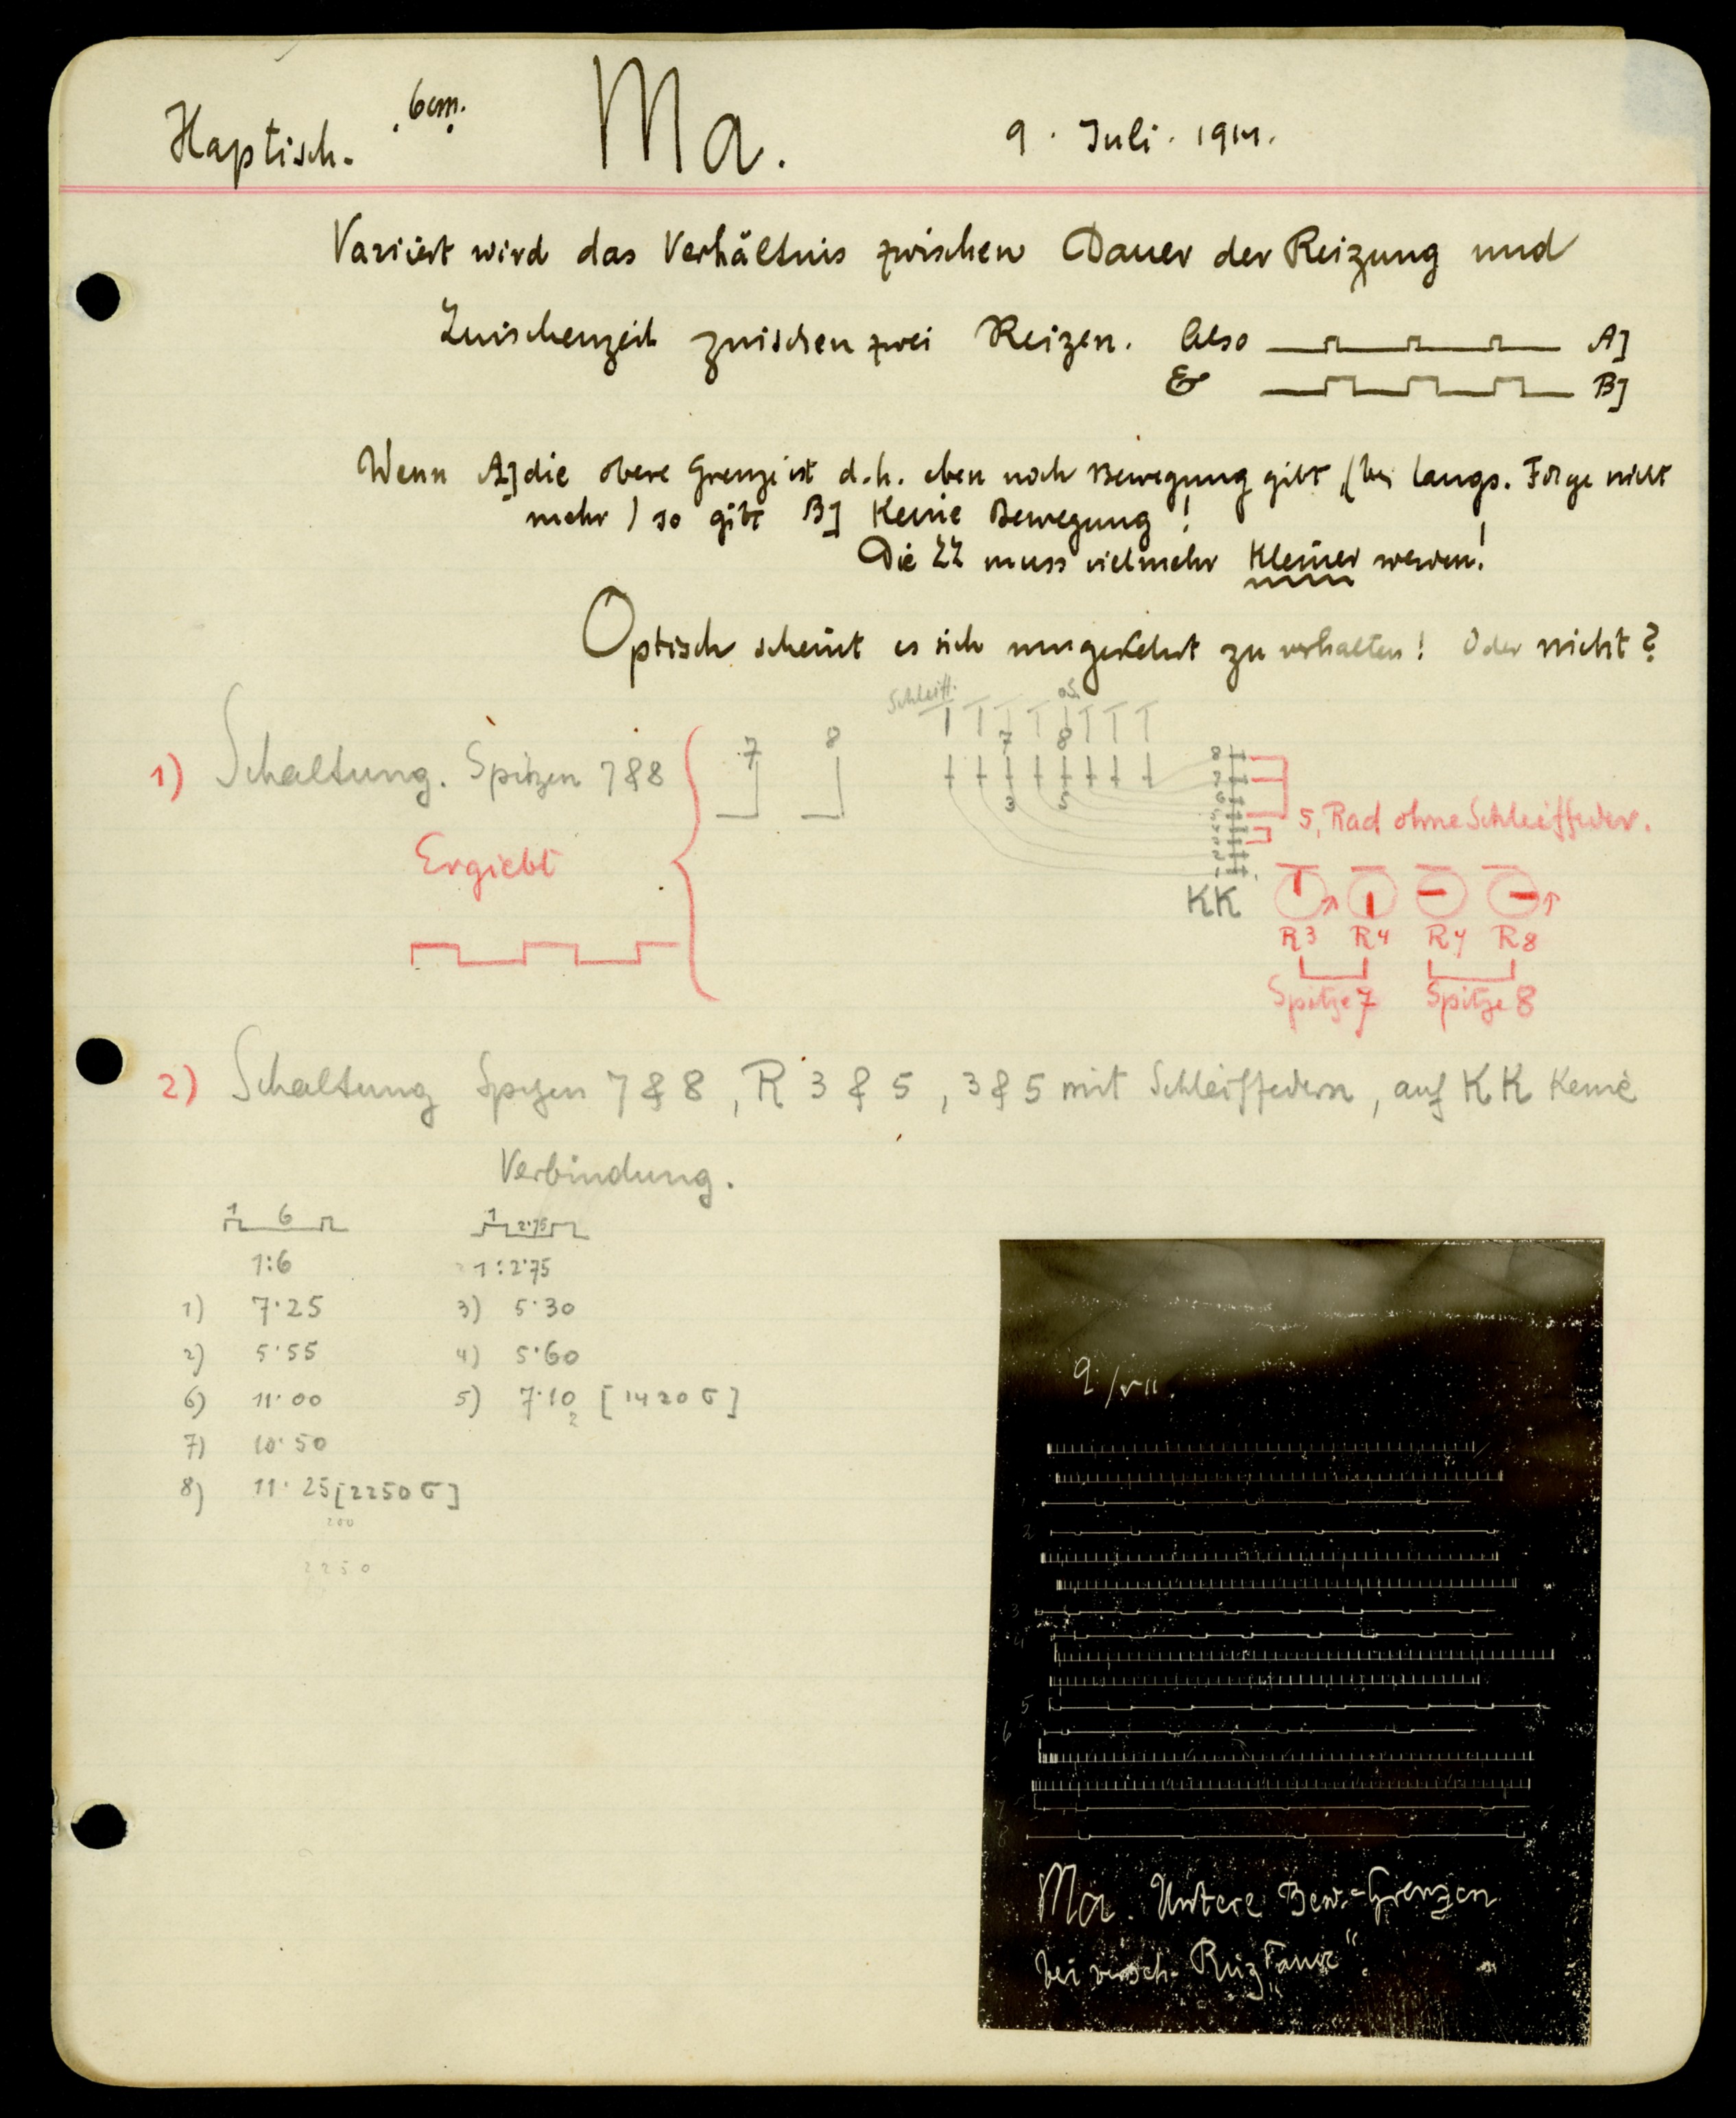 Haptisch. 6cm. Ma. 9. Juli. 1914.
Variiert wird das Verhältnis zwischen Dauer der Reizung und
Zwischenzeit zwischen zwei Reizen. Also A]
& B]
Wenn A] die obere Grenze ist d.h. eben noch Bewegung gibt (bei langs. Folge nicht
mehr) so gibt B] Keine Bewegung!
Die ZZ muss vielmehr Kleiner werden!
Optisch scheint es sich umgekehrt zu verhalten! Oder nicht?
Schleiff.
7 8
3 5
8
7
6
1) Schaltung. Spitzen 7&8
7 8
5, Rad ohne Schleiffeder.
Ergiebt
KK
R3 R4 R7 R8
Spitze 7 Spitze 8
2) Schaltung Spitzen 7 & 8, R 3 & 5, 3 & 5 mit Schleiffedern, auf KK Keine
Verbindung.
1 6 1 2·75
1:6 1:2·75
1) 7·25 3) 5·30
2) 5·55 4) 5·60
6) 11·00 5) 7·10 [1420 σ]
2
7) 10·50
8) 11·25 [2250 σ]
200
2250
9/VII.
1
2
3
4
5
6
7
8
Ma. Untere Bew.-Grenzen
bei versch. Reiz„dauer“.